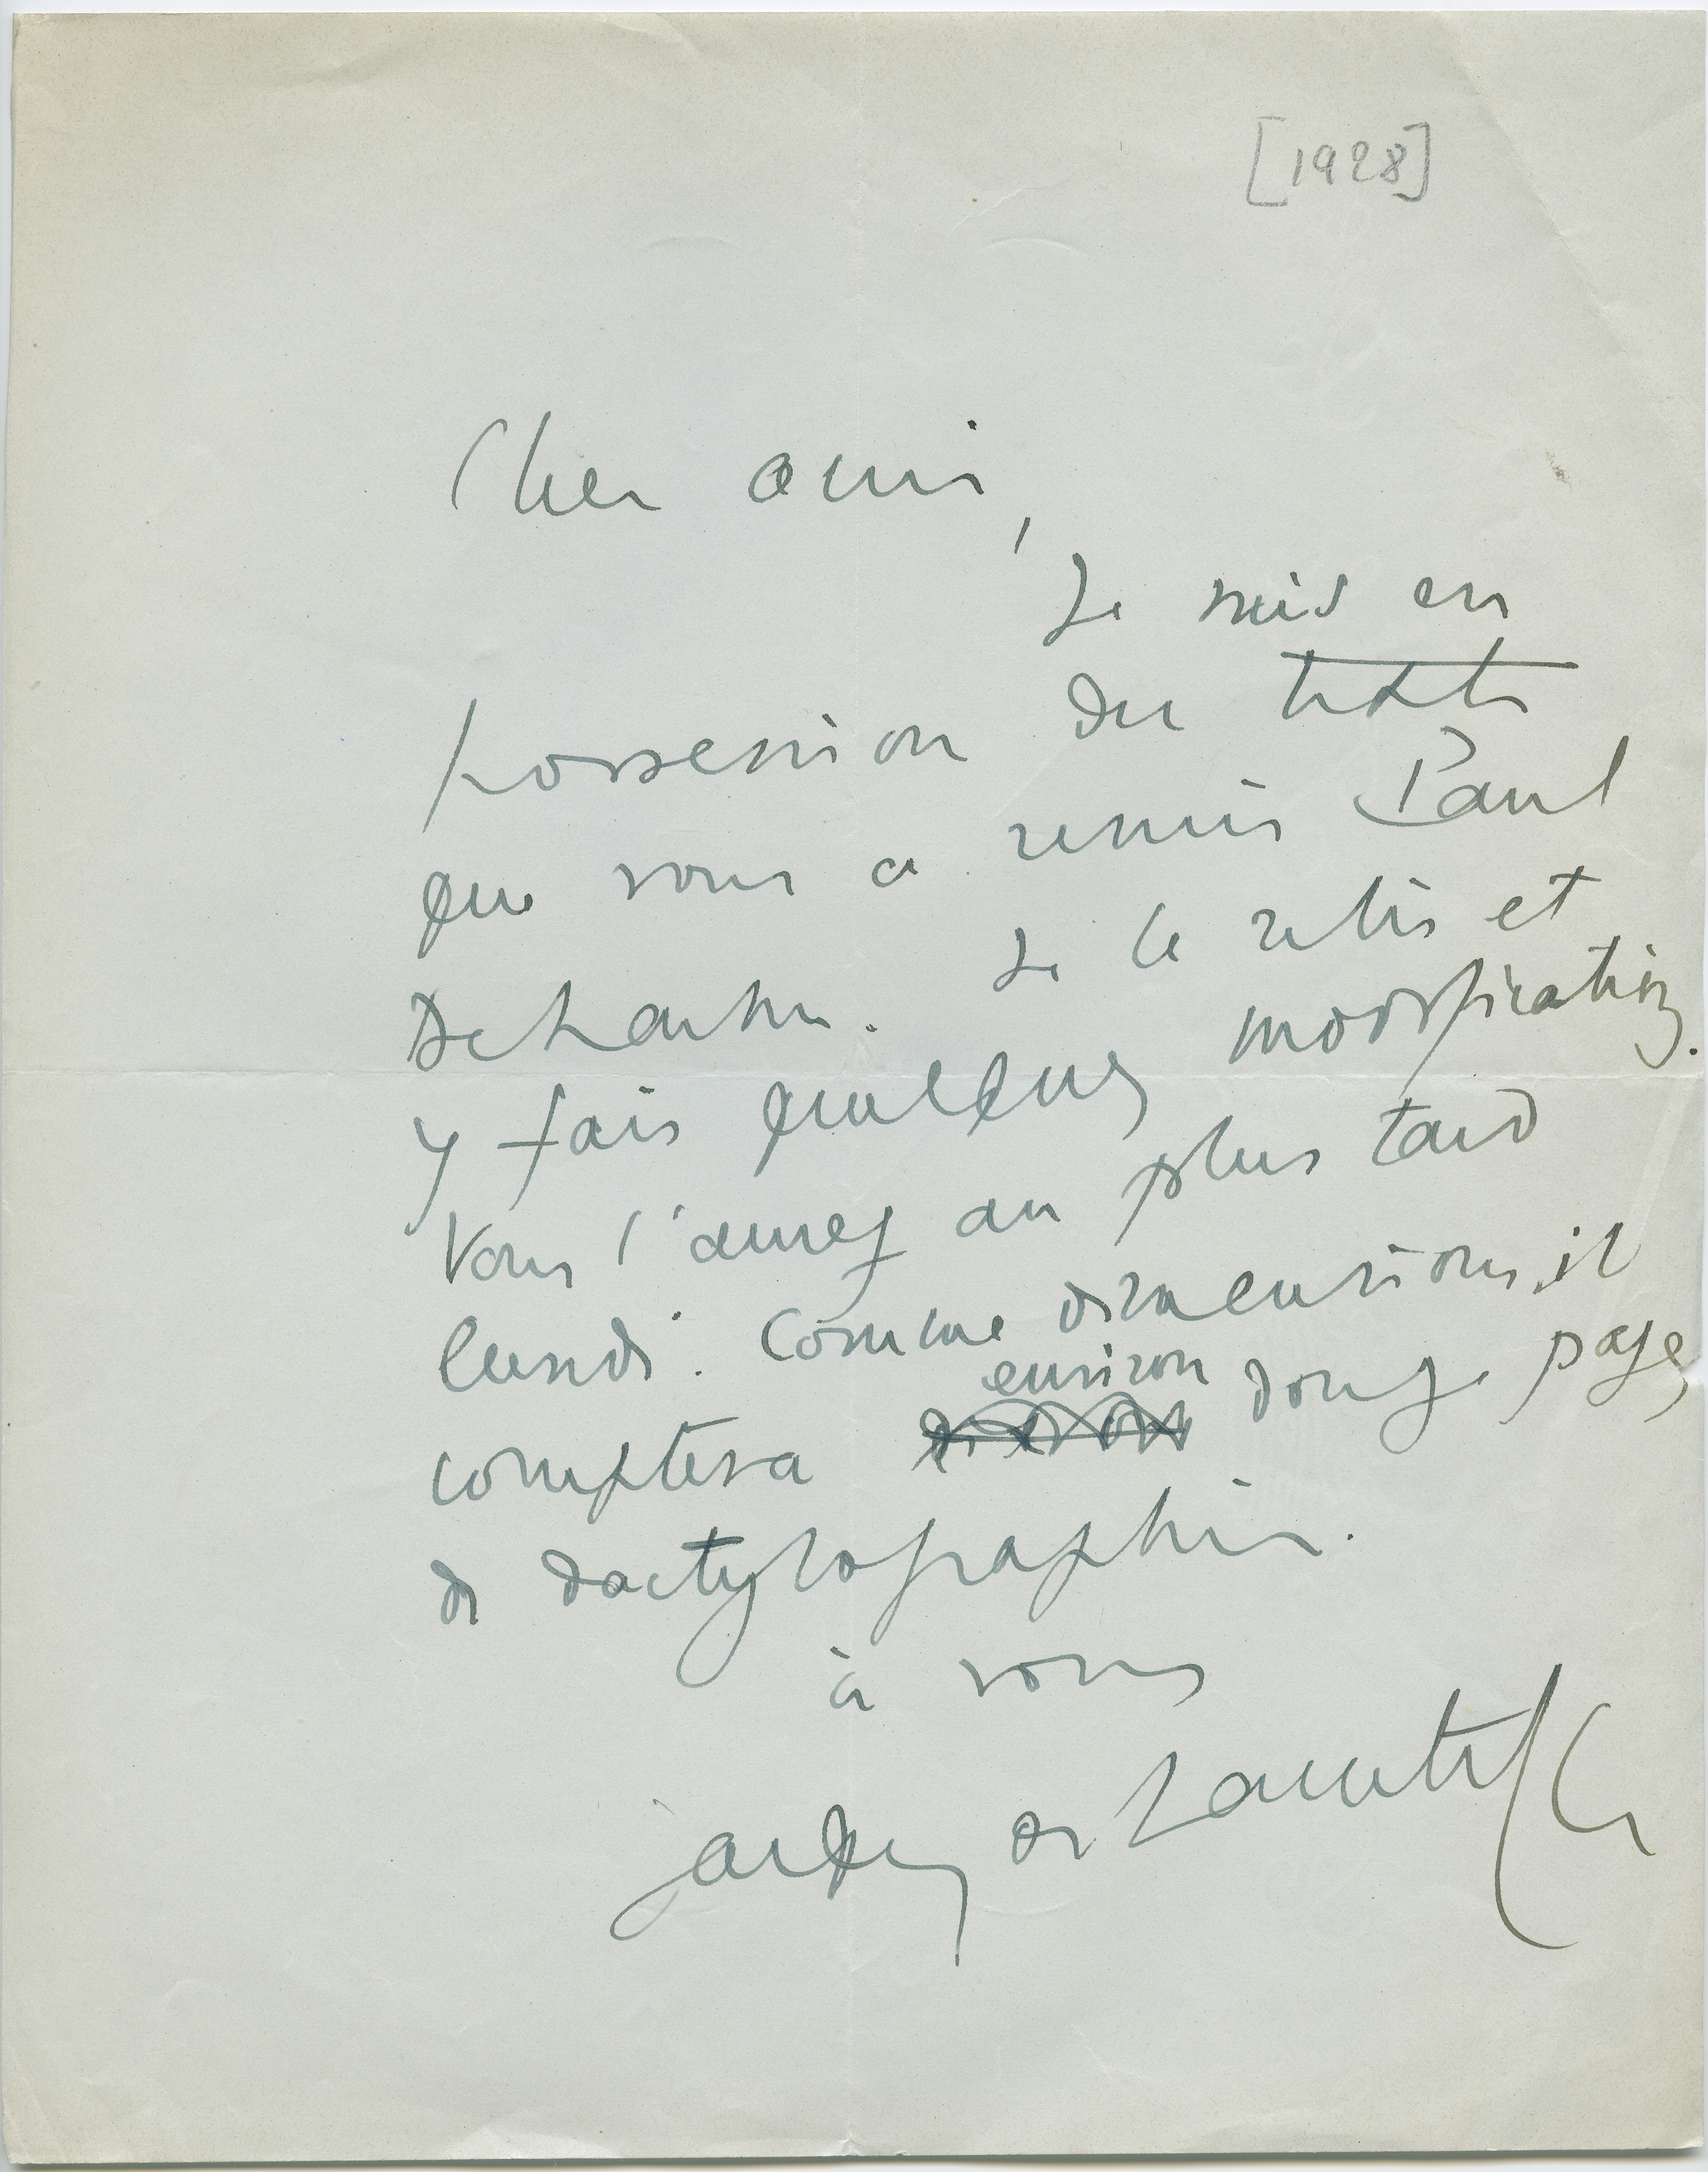 [1928]
Cher ami,
Je suis en
possession du texte
que vous a remis Paul
Deharme. Je le relis et
y fais quelques modifications.
Vous l'aurez au plus tard
lundi. Comme dimensions, il
environ
comptera douze pages
de dactylographie.
à vous